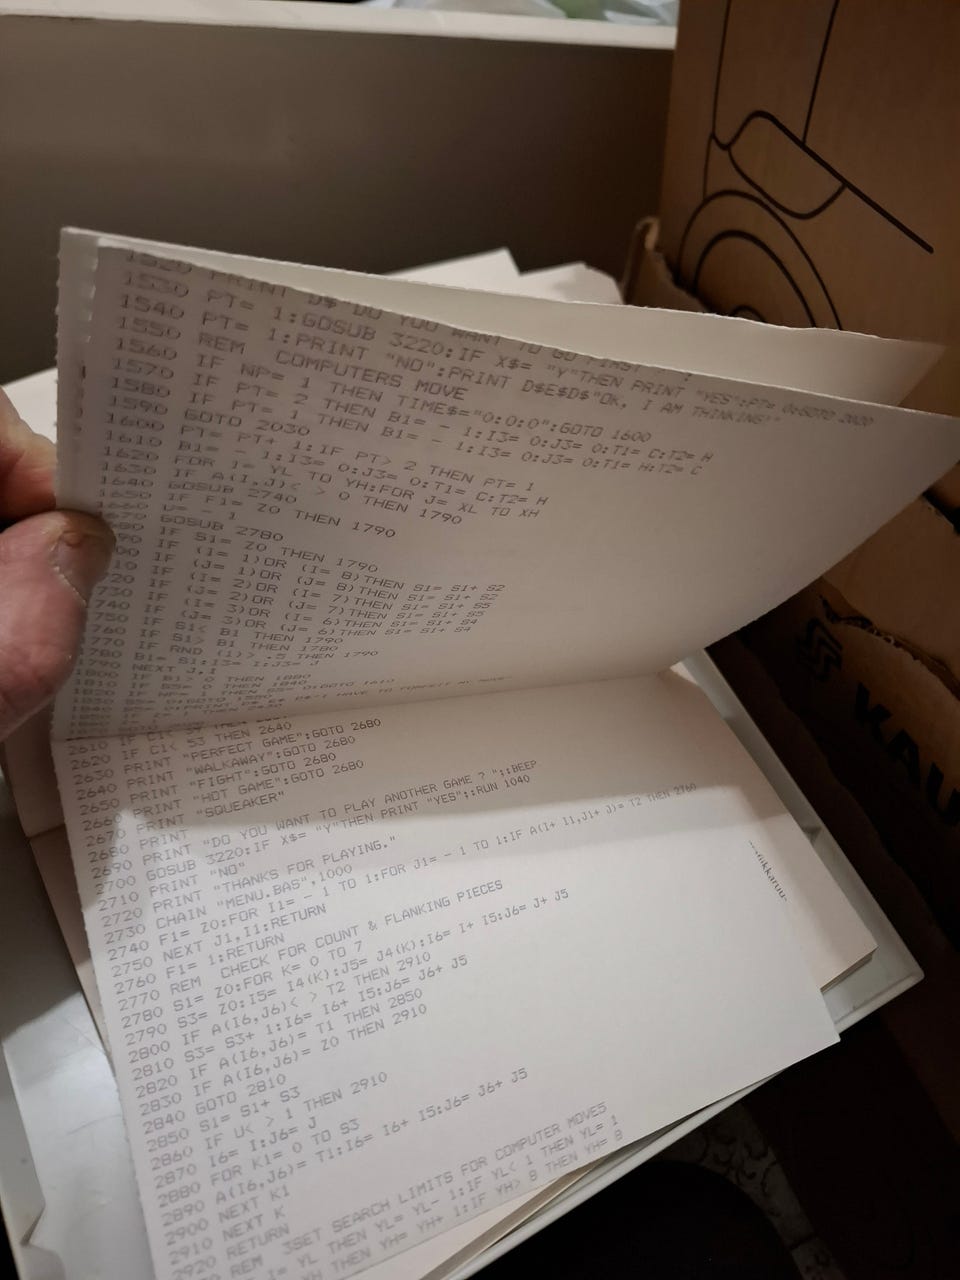 1520 PRINT D$"DO YOU WANT TO GO FIRST
1530 PT= 1:GOSUB 3220:IF X$= "Y"THEN PRINT "YES":PT= 0:GOTO 2030
1540 PT= 1:PRINT "NO":PRINT D$E$D$"OK, I AM THINKING!"
1550 REM COMPUTERS MOVE
1560 IF NP= 1 THEN TIME$="0:0:0":GOTO 1600
1570 IF PT= 2 THEN B1= - 1:I3= 0:J3= 0:T1= C:T2= H
1580 IF PT= 1 THEN B1= - 1:I3= 0:J3= 0:T1= H:T2= C
1590 GOTO 2030
1600 PT= PT+ 1:IF PT> 2 THEN PT= 1
1610 B1= - 1:I3= 0:J3= 0:T1= C:T2= H
1620 FOR I= YL TO YH:FOR J= XL TO XH
1630 IF A(I,J)< > 0 THEN 1790
1640 GOSUB 2740
1650 IF F1= Z0 THEN 1790
1660 U= - 1
1670 GOSUB 2780
IF S1= Z0 THEN 1790
IF (I= 1)OR (I= 8)THEN S1= S1+ S2
IF (J= 1)OR (J= 8)THEN S1= S1+ S2
IF (I= 2)OR (I= 7)THEN S1= S1+ S5
IF (J= 2)OR (J= 7)THEN S1= S1+ S5
IF (I= 3)OR (I= 6)THEN S1= S1+ S4
740 IF (J= 3)OR (J= 6)THEN S1= S1+ S4
750 IF S1< B1 THEN 1790
1760 IF S1> B1 THEN 1780
1770 IF RND (1)> .5 THEN 1790
1780 B1= S1:I3= I:J3= J
1790 NEXT J,I
1800 IF B1> 0 THEN 1880
1810 IF S5= 0 THEN 1840
1820 IF NP= 1 THEN S5= 0:GOTO 1610
2610 IF C1<
2620 IF C1< 53 THEN 2640
2630 PRINT "PERFECT GAME":GOTO 2680
2640 PRINT "WALKAWAY":GOTO 2680
2650 PRINT "FIGHT":GOTO 2680
2660 PRINT "HOT GAME":GOTO 2680
2670 PRINT "SQUEAKER"
2680 PRINT
2690 PRINT "DO YOU WANT TO PLAY ANOTHER GAME ? ";:BEEP
2700 GOSUB 3220:IF X$= "Y"THEN PRINT "YES";:RUN 1040
2710 PRINT "NO"
2720 PRINT "THANKS FOR PLAYING."
2730 CHAIN "MENU.BAS",1000
2740 F1= Z0:FOR I1= - 1 TO 1:FOR J1= - 1 TO 1:IF A(I+ I1,J1+ J)= T2 THEN 2760
2750 NEXT J1,I1:RETURN
2760 F1= 1:RETURN
2770 REM CHECK FOR COUNT & FLANKING PIECES
2780 S1= Z0:FOR K= 0 TO 7
2790 S3= Z0:I5= I4(K):J5= J4(K):I6= I+ I5:J6= J+ J5
2800 IF A(I6,J6)< > T2 THEN 2910
2810 S3= S3+ 1:I6= I6+ I5:J6= J6+ J5
2820 IF A(I6,J6)= T1 THEN 2850
2830 IF A(I6,J6)= Z0 THEN 2910
2840 GOTO 2810
2850 S1= S1+ S3
2860 IF U< > 1 THEN 2910
2870 I6= I:J6= J
2880 FOR K1= 0 TO S3
2890 A(I6,J6)= T1:I6= I6+ I5:J6= J6+ J5
2900 NEXT K1
2910 NEXT K
2920 RETURN
REM 3SET SEARCH LIMITS FOR COMPUTER MOVES
I= YL THEN YL= YL- 1:IF YL< 1 THEN YL= 1
YH THEN YH= YH+ 1:IF YH> 8 THEN YH= 8